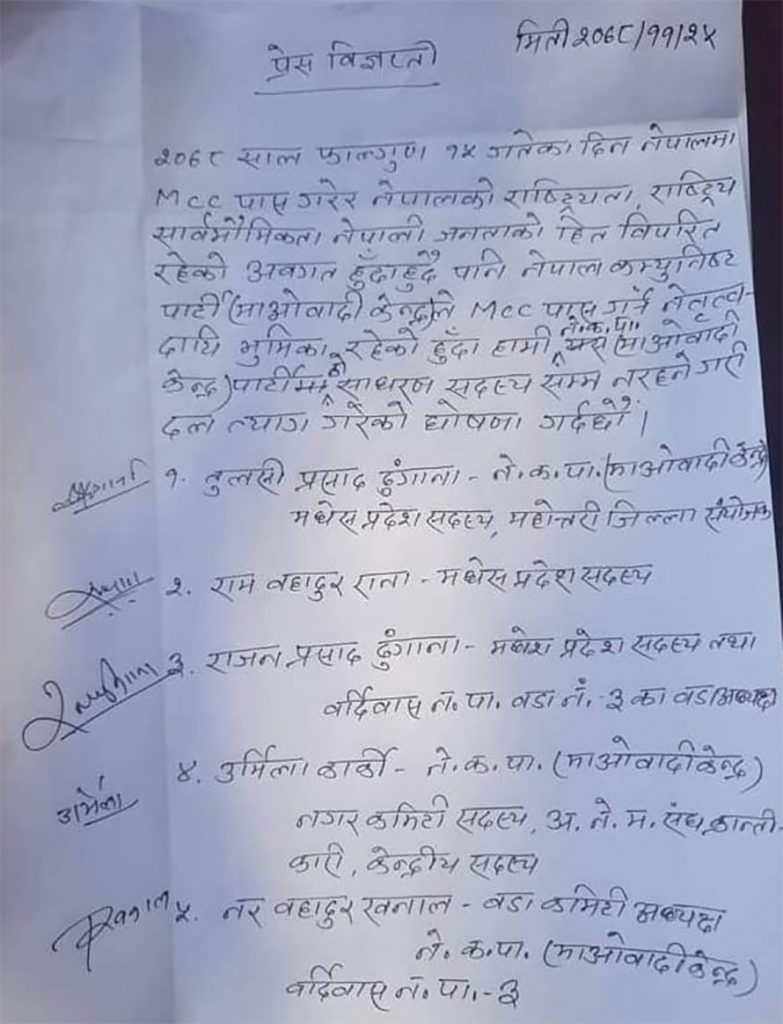 मिती २०७८/११/२५
प्रेस विज्ञप्ती
२०७८ साल फाल्गुण १५ गतेका दिन नेपालमा
MCC पास गरेर नेपालको राष्ट्रियता, राष्ट्रिय
सार्वभौमिकता नेपाली जनताको हित विपरित
रहेको अवगत हुँदाहुदै पनि नेपाल कम्युनिष्ट
पार्टी (माओवादी केन्द्र)ले MCC पास गर्न नेतृत्व-
दायि भुमिका रहेको हुँदा हामी ने.क.पा. (माओवादी
केन्द्र) पार्टीमा को साधरण सदस्य सम्म नरहने गरी
दल त्याग गरेको घोषणा गर्दछौं ।
१. तुलसी प्रसाद ढुंगाना - ने.क.पा. (माओवादी केन्द्र)
मधेस प्रदेश सदस्य, महोत्तरी जिल्ला संयोजक
२. राम वहादुर राना - मधेस प्रदेश सदस्य
३. राजन प्रसाद ढुंगाना - मधेश प्रदेश सदस्य तथा
वर्दिवास न.पा. वडा नं. -३ का वडा अध्यक्ष
४. उर्मिला कार्की - ने.क.पा. (माओवादी केन्द्र)
उर्मिला
नगर कमिटी सदस्य, अ.ने.म. संघ क्रान्ती-
कारी, केन्द्रीय सदस्य
५. नर वहादुर खनाल - वडा कमिटी अध्यक्ष
ने.क.पा. (माओवादी केन्द्र)
वर्दिवास न.पा.-३